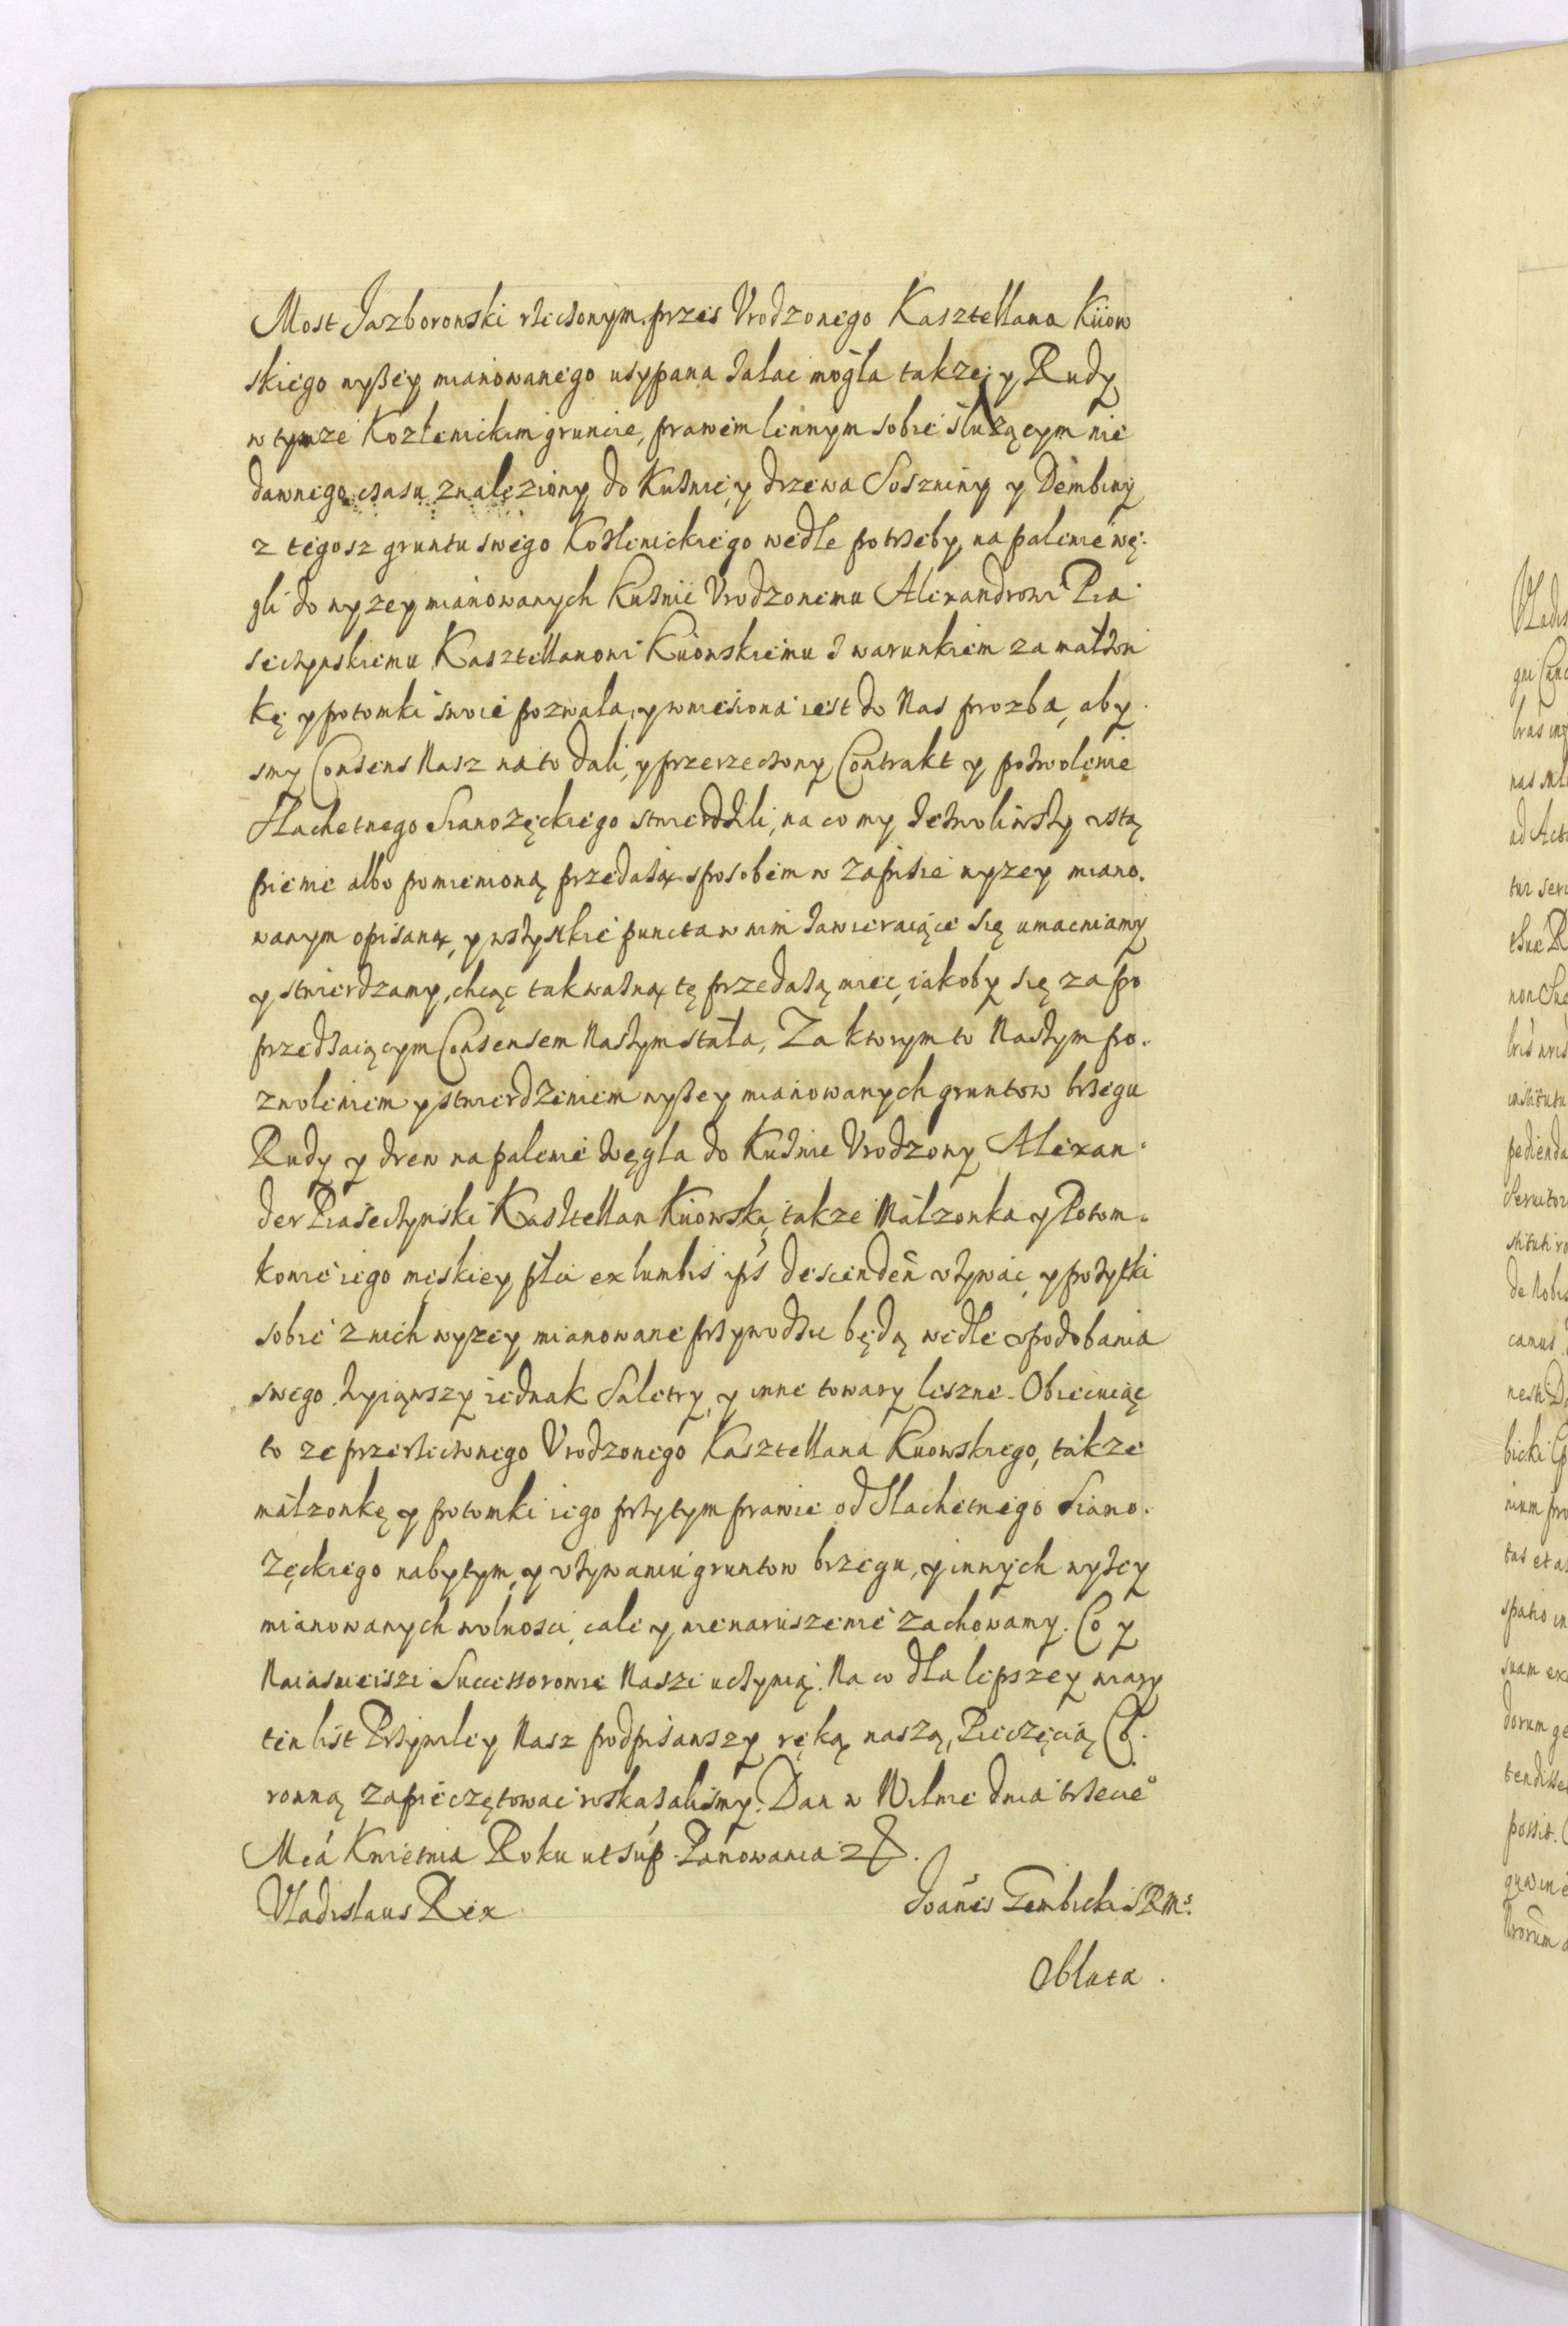 Most Jazboronski rzeczonym przes Vrodzonego Kasztellana Kiiow
skiego wyßey mianowanego usypana zalac mogła takze y Rudy
w tymze Kozlenickim gruncie, prawem lennym sobie słuzącym nie
dawnego czasu znalęziony do Kuznie, y drzewa Soszniny y Dembiny
z tegosz gruntu swego Kozlenickiego wedle potrzeby, na palenie wę.
gli do wyzey mianowanych Kuznie Vrodzonemu Alexandrowi Pia
seczynskiemu Kasztellanowi Kiiowskiemu z warunkiem za małzon
kę y potomki swoie pozwala, y wniesiona iest do Nas prozba, aby
smy Consens Nasz na to dali, y przerzeczony Contrakt y pozwolenie
Slachetnego Sianozęckiego stwierdzili, na co my zezwoliwszy vstą
pienie albo pomienioną przedażą sposobem w zapisie wyzey miano.
wanym opisaną, y wszystkie puncta w nim zawieraiące się umacniamy
y stwierdzamy, chcąc tak ważną tę przedażą miec, iakoby się za po
przedzaiącym Consensem Naszym stała, Za ktorym to Naszym po.
zwoleniem y stwierdzeniem wyßey mianowanych gruntow brzegu
Rudy y drew na palenie węgla do Kuznie Vrodzony Alexan
der Piaseczynski Kasztellan Kiiowski, takze Małzonka y Potom.
kowie iego męskiey płci ex lumbis ips descenden vzywac, y pozytki
sobie z nich wyzey mianowane przywodzic będą wedle vpodobania
swego wyiąwszy iednak Saletry, y inne towary leszne. Obiecuiąc
to ze przerzeczonego Vrodzonego Kasztellana Kiiowskiego, takze
małzonkę y potomki iego przy tym prawie od Slachetnego Siano.
zęckiego nabytym, y vzywaniu gruntow brzegu, y innych wyzey
mianowanych wolnosci, cale y nienaruszenie zachowamy. Co y
Naiasnieiszi Successorowie Naszi uczynią. Na co dla lepszey wiary
ten list Przywiley Nasz podpisawszy ręką naszą, Pieczęcią Co.
ronną zapieczętowac roskazalismy. Dan w Wilnie dnia trzecie°
Mca Kwietnia Roku ut sup. Panowania
Vladislaus Rex
Joanes Gembicki SRMs
Oblata.